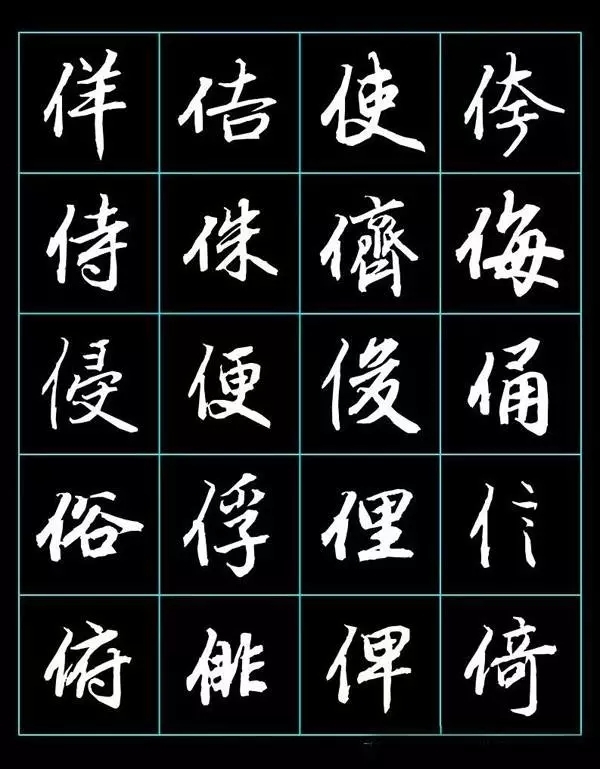 佯佶使侉
侍侏儕侮
侵便俊俑
俗俘俚信
俯俳俾倚